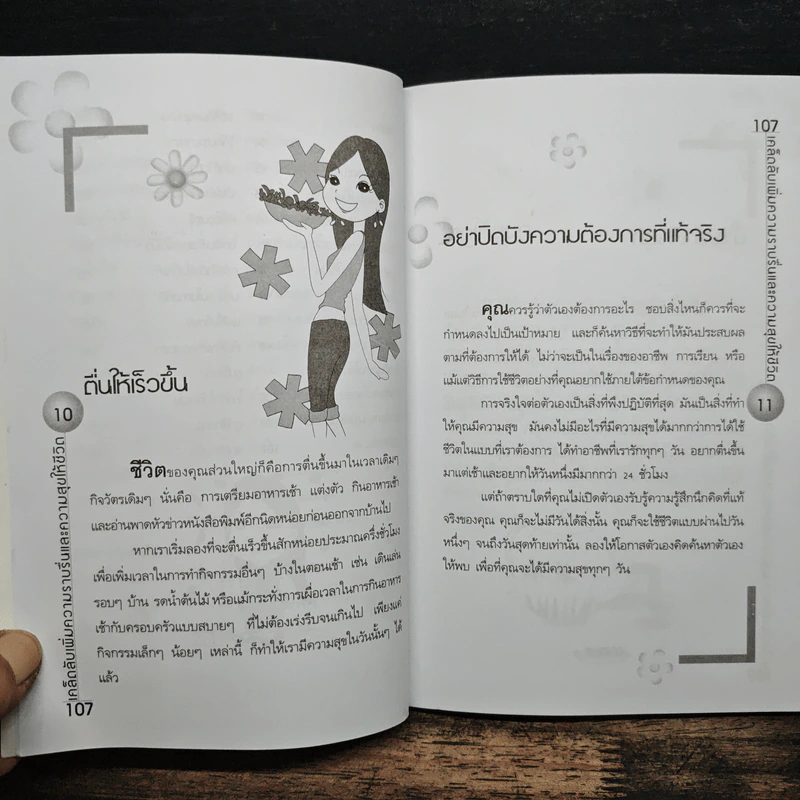 ตื่นให้เร็วขึ้น
10
ชีวิตของคุณส่วนใหญ่ก็คือการตื่นขึ้นมาในเวลาเดิมๆ
กิจวัตรเดิมๆ นั่นคือ การเตรียมอาหารเช้า แต่งตัว กินอาหารเช้า
และอ่านพาดหัวข่าวหนังสือพิมพ์อีกนิดหน่อยก่อนออกจากบ้านไป
หากเราเริ่มลองที่จะตื่นเร็วขึ้นสักหน่อยประมาณครึ่งชั่วโมง
เพื่อเพิ่มเวลาในการทำกิจกรรมอื่นๆ บ้างในตอนเช้า เช่น เดินเล่น
รอบๆ บ้าน รดน้ำต้นไม้ หรือแม้กระทั่งการเผื่อเวลาในการกินอาหาร
เช้ากับครอบครัวแบบสบายๆ ที่ไม่ต้องเร่งรีบจนเกินไป เพียงแค่
กิจกรรมเล็กๆ น้อยๆ เหล่านี้ ก็ทำให้เรามีความสุขในวันนั้นๆ ได้
แล้ว
107
เคล็ดลับเพิ่มความราบรื่นและความสุขให้ชีวิต
107
เคล็ดลับเพิ่มความราบรื่นและความสุขให้ชีวิต
11
อย่าปิดบังความต้องการที่แท้จริง
คุณควรรู้ว่าตัวเองต้องการอะไร ชอบสิ่งไหนก็ควรที่จะ
กำหนดลงไปเป็นเป้าหมาย และก็ค้นหาวิธีที่จะทำให้มันประสบผล
ตามที่ต้องการให้ได้ ไม่ว่าจะเป็นในเรื่องของอาชีพ การเรียน หรือ
แม้แต่วิธีการใช้ชีวิตอย่างที่คุณอยากใช้ภายใต้ข้อกำหนดของคุณ
การจริงใจต่อตัวเองเป็นสิ่งที่พึงปฏิบัติที่สุด มันเป็นสิ่งที่ทำ
ให้คุณมีความสุข มันคงไม่มีอะไรที่มีความสุขได้มากกว่าการได้ใช้
ชีวิตในแบบที่เราต้องการ ได้ทำอาชีพที่เรารักทุกๆ วัน อยากตื่นขึ้น
มาแต่เช้าและอยากให้วันหนึ่งมีมากกว่า 24 ชั่วโมง
แต่ถ้าตราบใดที่คุณไม่เปิดตัวเองรับรู้ความรู้สึกนึกคิดที่แท้
จริงของคุณ คุณก็จะไม่มีวันได้สิ่งนั้น คุณก็จะใช้ชีวิตแบบผ่านไปวัน
หนึ่งๆ จนถึงวันสุดท้ายเท่านั้น ลองให้โอกาสตัวเองคิดค้นหาตัวเอง
ให้พบ เพื่อที่คุณจะได้มีความสุขทุกๆ วัน